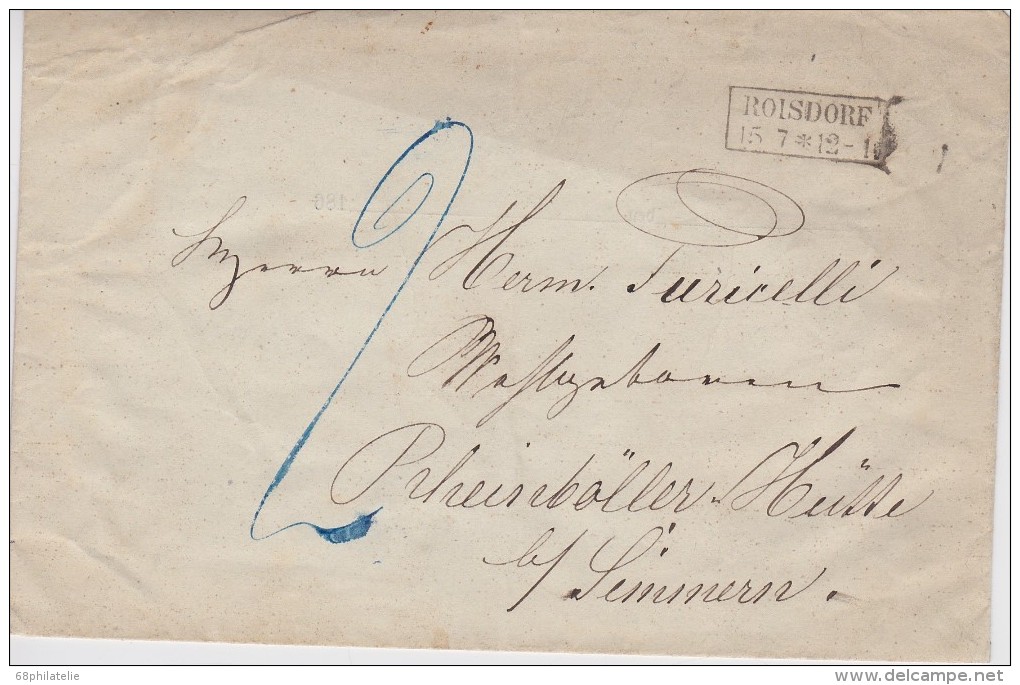 ROISDORF
15 7 * 12 - 1
186
Herrn Herm. Puricelli
Wohlgeboren
Rheinböller-Hütte
b/ Simmern.
2
68philatelie
delcampe.net